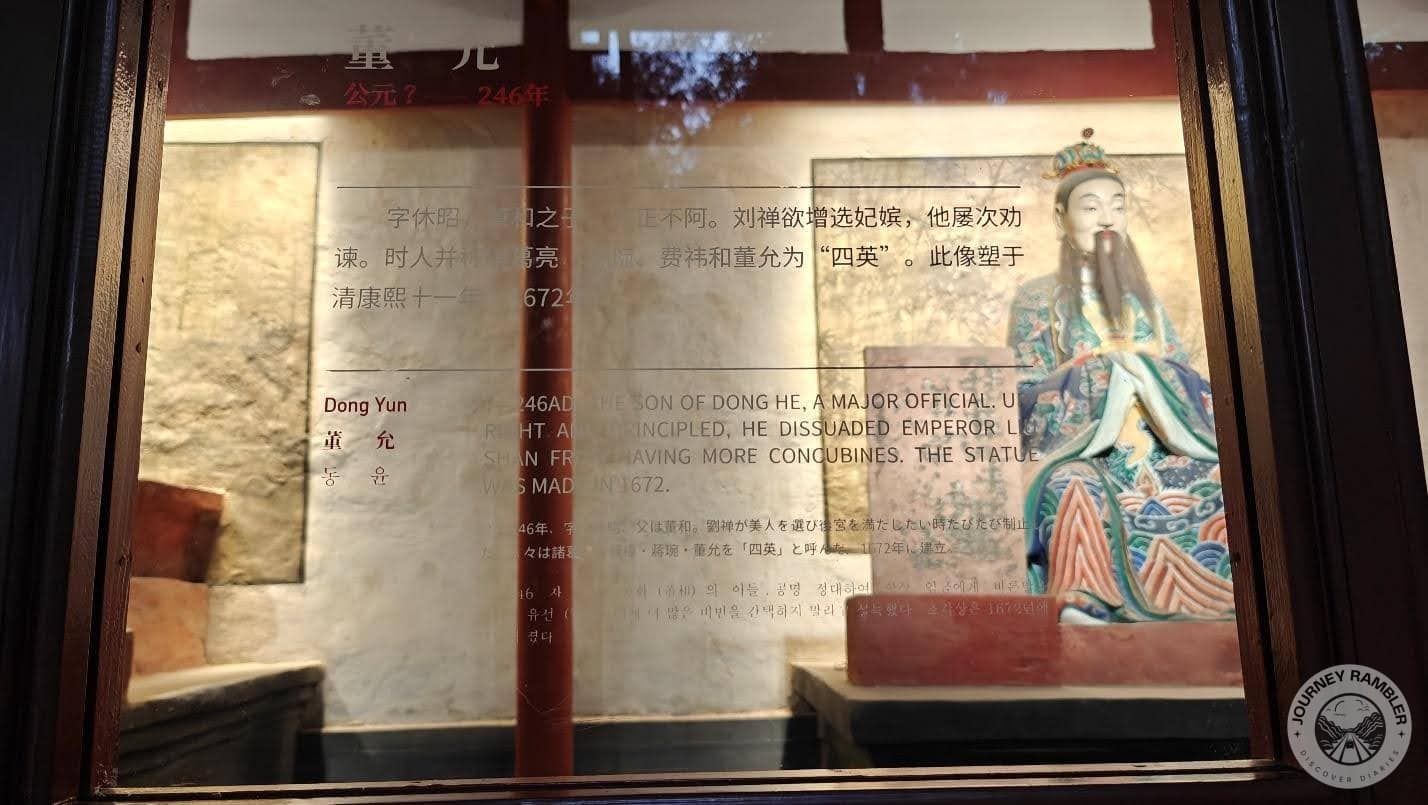 董 允
公元？—— 246年
字休昭，董和之子 正不阿。刘禅欲增选妃嫔，他屡次劝
谏。时人并称 葛亮 费祎和董允为“四英”。此像塑于
清康熙十一年 1672
Dong Yun
董 允
동 윤
246AD THE SON OF DONG HE, A MAJOR OFFICIAL.
RIGHT AND PRINCIPLED, HE DISSUADED EMPEROR
SHAN FROM HAVING MORE CONCUBINES. THE STATUE
WAS MADE IN 1672.
46年．字 父は董和。劉禅が美人を選び後宮を満たしたい時たびたび制止
々は諸葛 蔣琬・董允を「四英」と呼んだ。1672年に建立。
46 사 (董和) 의 아들．공명 정대하여 임금에게
유선 ( 더 많은 비빈을 간택하지 말라 설득했다 조각상은 1672년에
졌다
JOURNEY RAMBLER
DISCOVER DIARIES